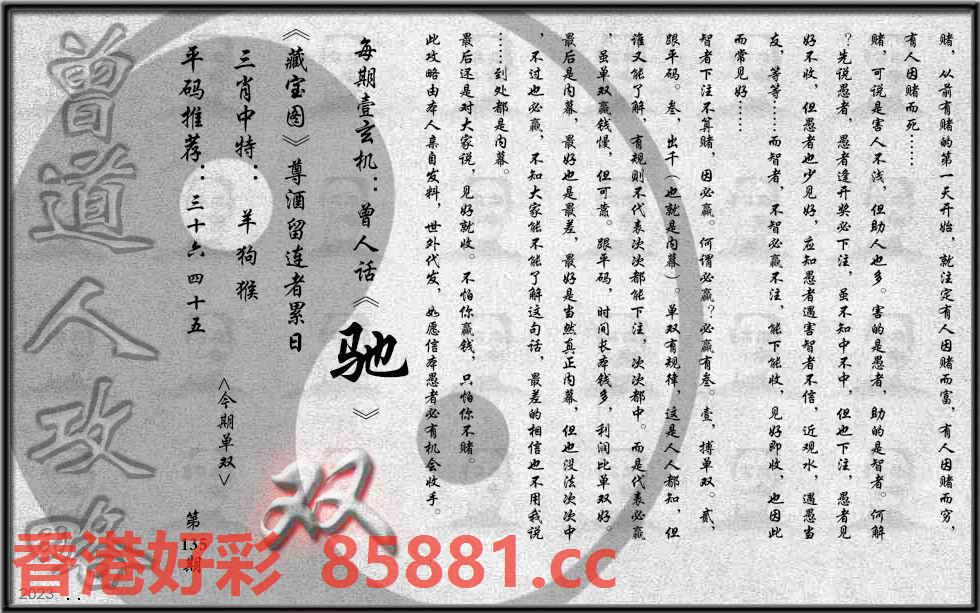 赌，从前有赌的第一天开始，就注定有人因赌而富，有人因赌而穷，
有人因赌而死……
赌，可说是害人不浅，但助人也多。害的是愚者，助的是智者。何解
？先说愚者，愚者逢开奖必下注，虽不知中不中，但也下注，愚者见
好不收，但愚者也少见好，应知愚者遇害智者不信，近观水，遇愚当
友，等等……而智者，不智必赢不注，能下能收，见好即收，也因此
而常见好……
智者下注不算赌，因必赢。何谓必赢？必赢有叁。壹，搏单双。贰，
跟平码。叁，出千（也就是内幕）。单双有规律，这是人人都知，但
谁又能了解，有规则不代表次次都能下注，次次都中。而是代表必赢
，虽单双赢钱慢，但可靠。跟平码，时间长本钱多，利润比单双好。
最后是内幕，最好也是最差，最好是当然真正内幕，但也没法次次中
，不过也必赢，不知大家能不能了解这句话，最差的相信也不用我说
……到处都是内幕。
最后还是对大家说，见好就收。不怕你赢钱，只怕你不赌。
此攻略由本人亲自发料，世外代发，如愿信本愚者必有机会收手。
每期壹玄机：曾人话《驰》
《藏宝图》尊酒留连者累日
三肖中特：羊狗猴
<今期单双>
双
平码推荐：三十六 四十五
第135期
曾道人攻略
香港好彩 85881.cc
2023